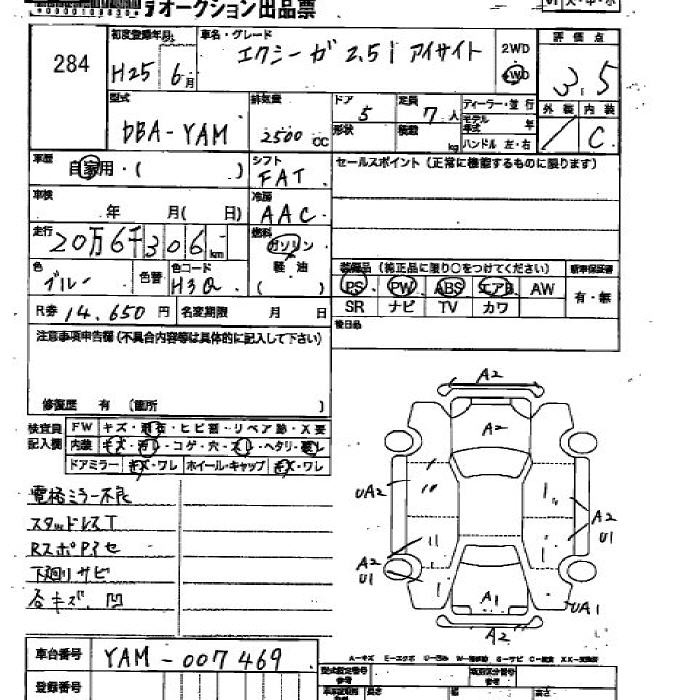 オークション出品票
284
初度登録年月
H25 6月
車名・グレード
エクシーガ 2.5i アイサイト
2WD
4WD
評価点
3.5
型式
DBA-YAM
排気量
2500cc
ドア
5
定員
7人
形状
積載
kg
ディーラー・並行
モデル年式 年
ハンドル 左・右
外装 内装
C
車歴
自家用・( )
シフト
FAT
セールスポイント(正常に機能するものに限ります)
車検
年 月( 日)
冷房
AAC
走行
20万6千306km
燃料
ガソリン
軽油
( )
色
ブルー
色替
色コード
H3Q
装備品(純正品に限り○をつけてください)
新車保証書
PS PW ABS エアB AW
SR ナビ TV カワ
有・無
R券 14,650円
名変期限 月 日
後日品
注意事項申告欄(不具合内容等は具体的に記入して下さい)
修復歴 有 〔箇所 〕
検査員記入欄
FW キズ・飛石・ヒビ割・リペア跡・X要
内装 キズ・汚レ・コゲ・穴・スレ・ヘタリ・
ドアミラー キズ・ワレ ホイール・キャップ キズ・ワレ
電格ミラー不良
スタッドレスT
RスポPイセ
下廻リサビ
各キズ、凹
A2
A2
UA2
A2
U1
A2
U1
A1
UA1
A2
車台番号
YAM-007469
登録番号
型式指定番号
類別区分番号
長さ
幅
高さ